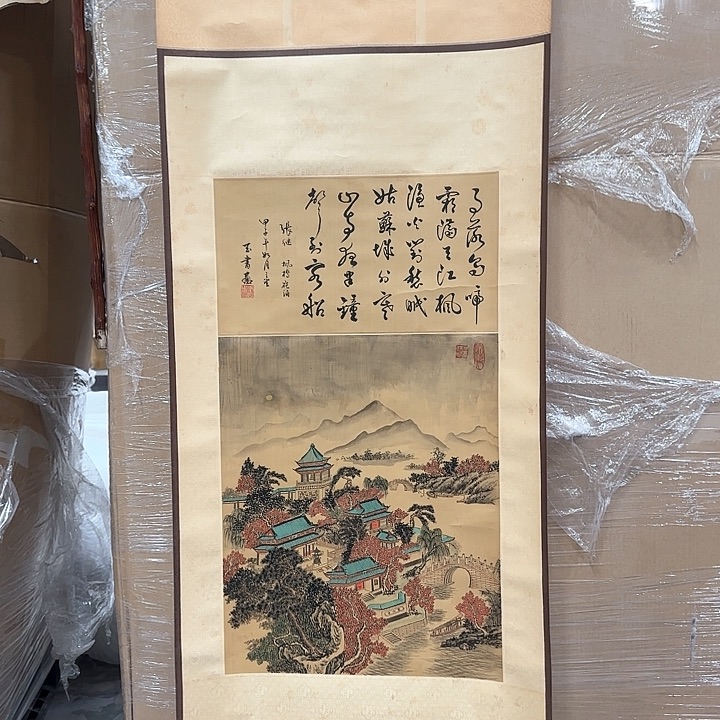 月落烏啼
霜滿天江楓
漁火對愁眠
姑蘇城外寒
山寺夜半鐘
聲到客船
張继 楓橋夜泊
甲子年如月之
書畫